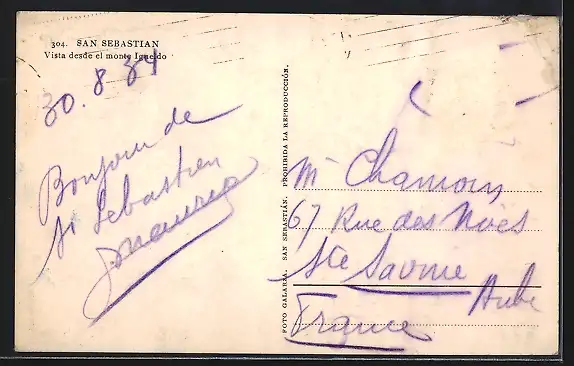 304. SAN SEBASTIAN
Vista desde el monte Igueldo
30.8.34
Bonjour de
St Sebastien
FOTO GALARZA. SAN SEBASTIÁN. PROHIBIDA LA REPRODUCCIÓN.
Mr Chamoin
67 Rue des Noës
Ste Savine
Aube
France